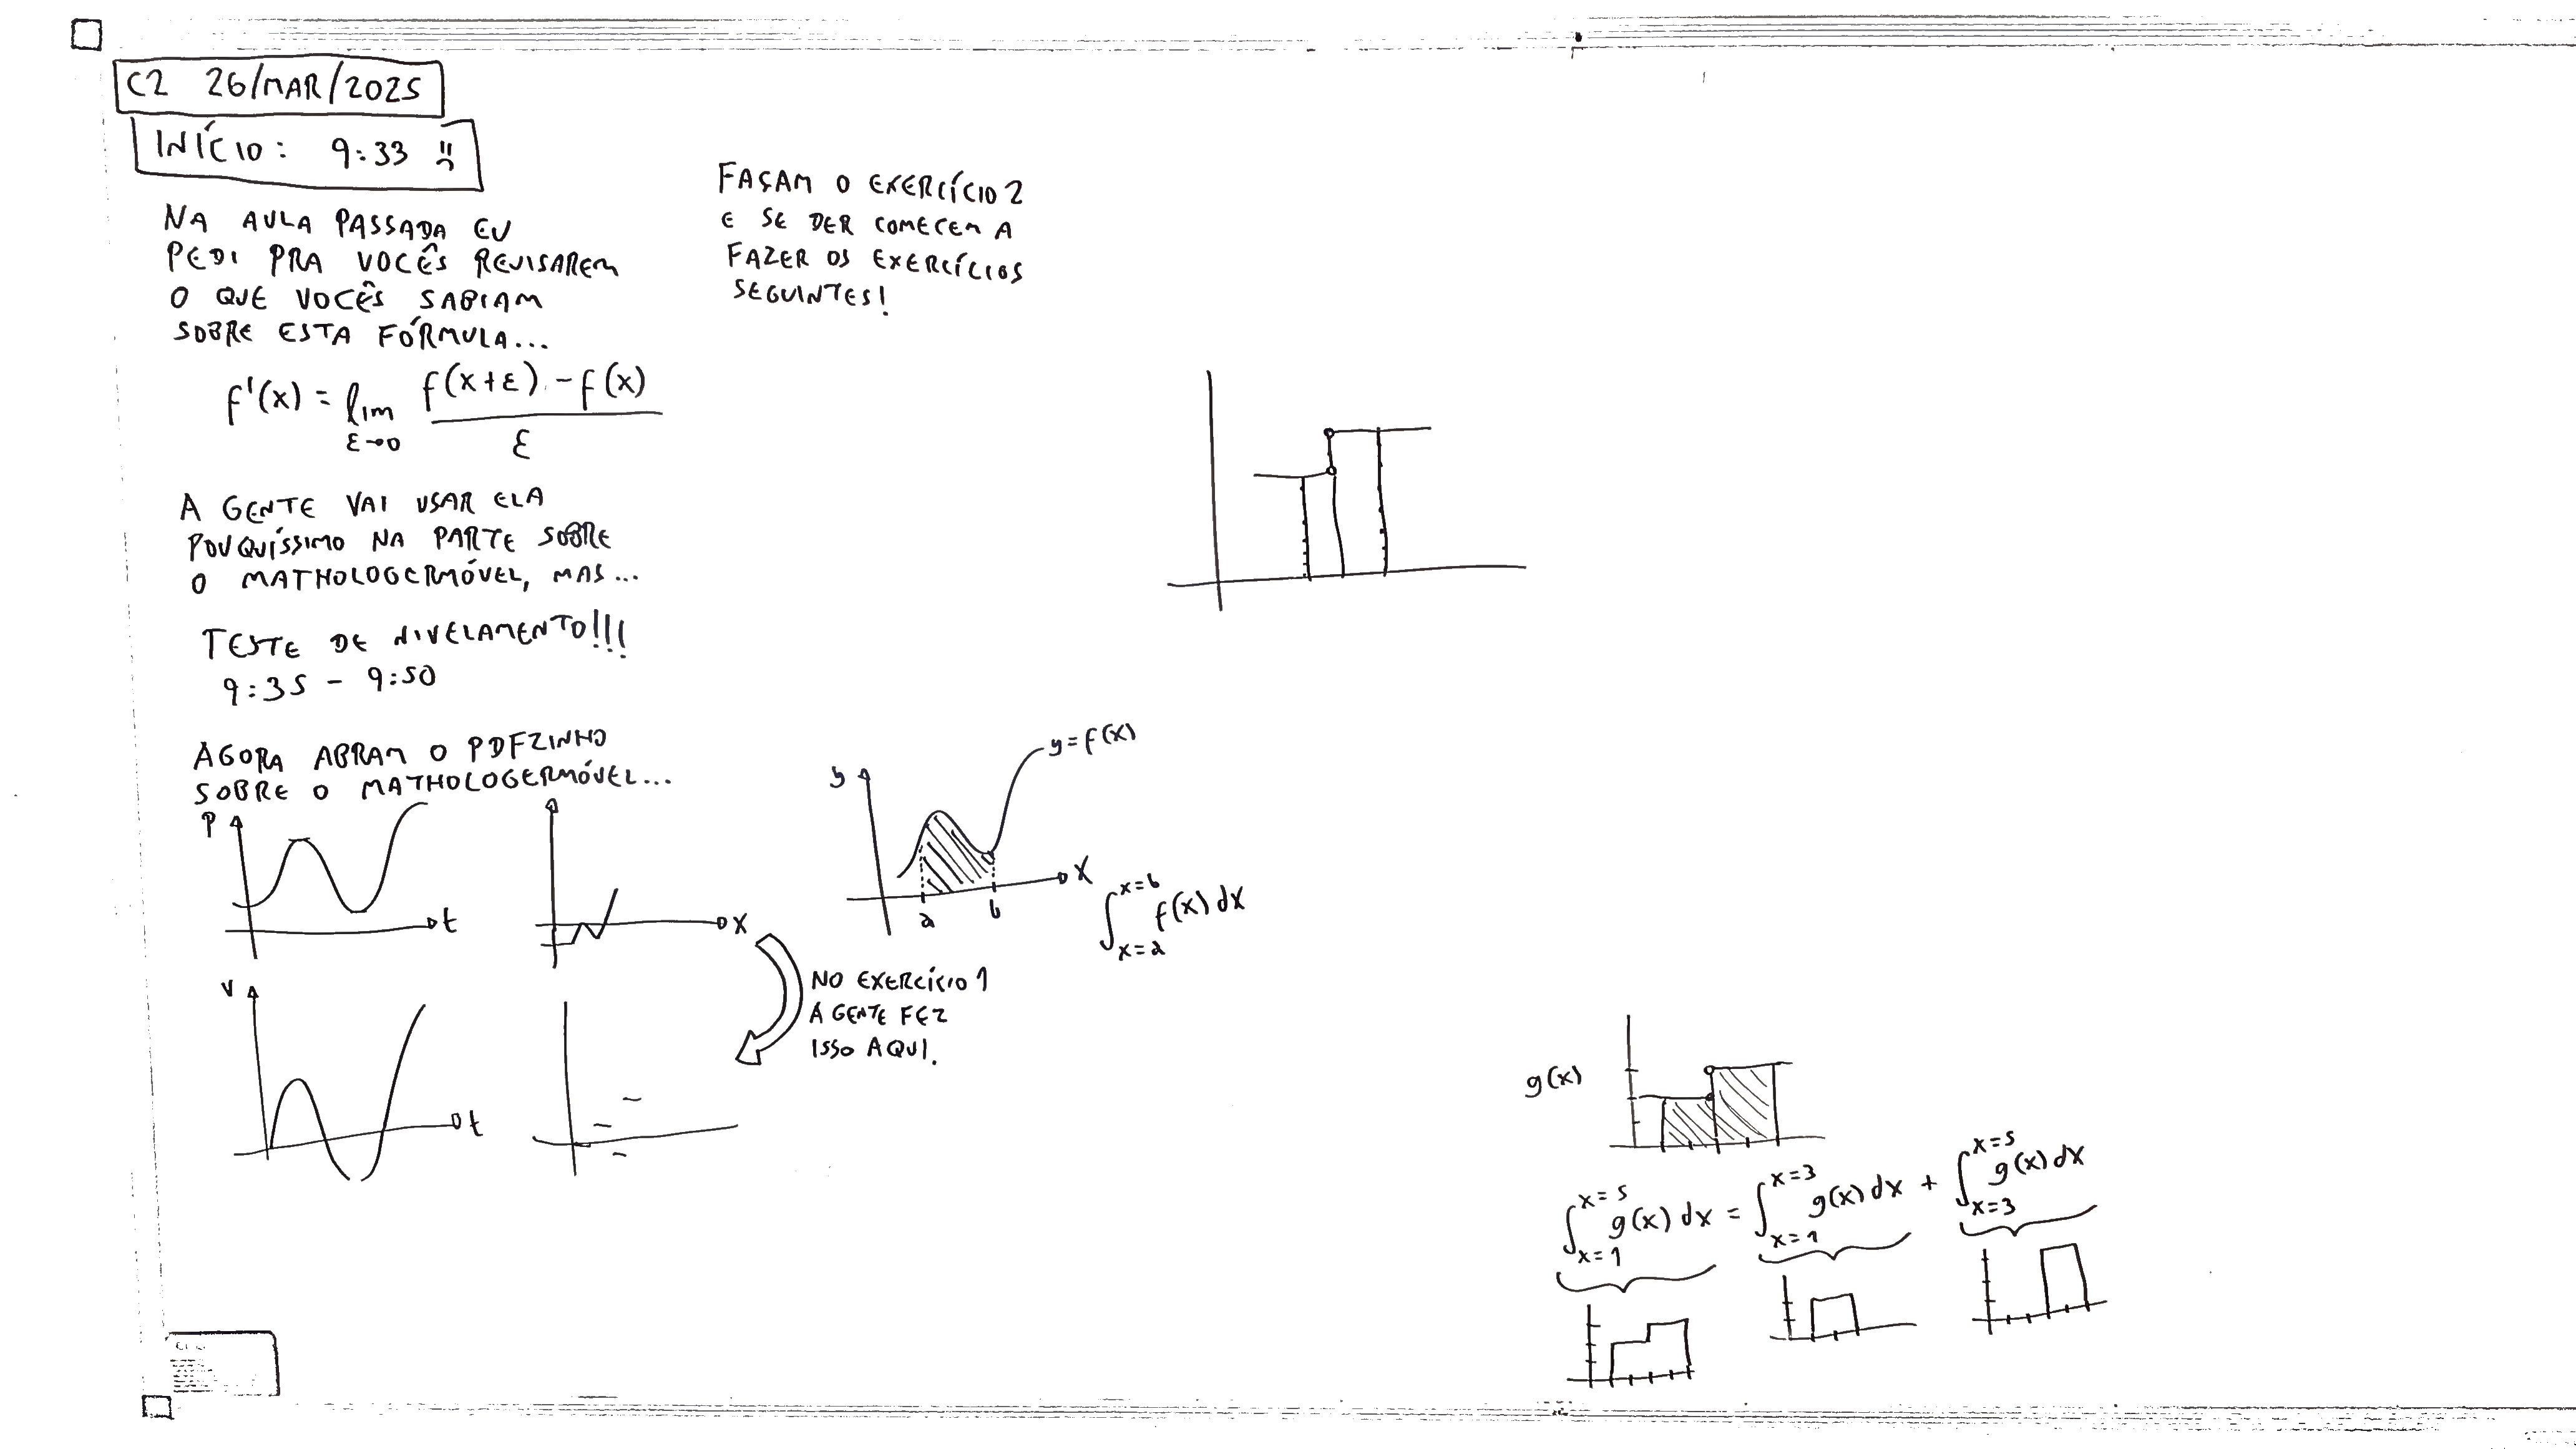 C2 26/MAR/2025
INÍCIO: 9:33
NA AULA PASSADA EU
PEDI PRA VOCÊS REVISAREM
O QUE VOCÊS SABIAM
SOBRE ESTA FÓRMULA...
f'(x) = lim ε→0 (f(x+ε) - f(x)) / ε
A GENTE VAI USAR ELA
POUQUÍSSIMO NA PARTE SOBRE
O MATHOLOGERMÓVEL, MAS...
TESTE DE NIVELAMENTO!!!
9:35 - 9:50
AGORA ABRAM O PDFZINHO
SOBRE O MATHOLOGERMÓVEL...
P
t
x
V
t
NO EXERCÍCIO 1
A GENTE FEZ
ISSO AQUI.
FAÇAM O EXERCÍCIO 2
E SE DER COMECEM A
FAZER OS EXERCÍCIOS
SEGUINTES!
y
y=f(x)
x
a
b
∫_{x=a}^{x=b} f(x) dx
g(x)
∫_{x=1}^{x=5} g(x) dx = ∫_{x=1}^{x=3} g(x) dx + ∫_{x=3}^{x=5} g(x) dx